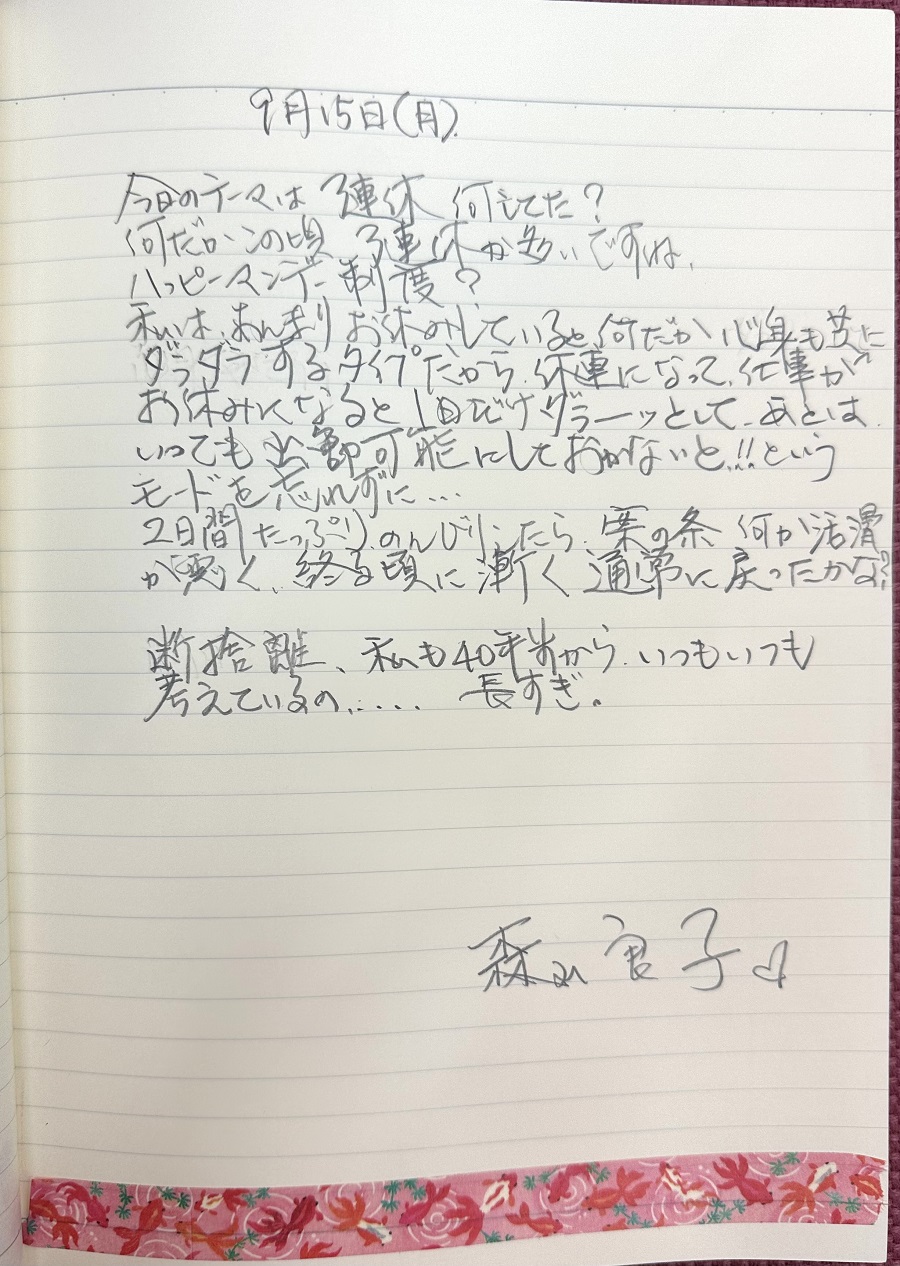 9月15日(月).
今日のテーマは 3連休 何してた?
何だかこの頃 3連休が多いですね.
ハッピーマンデー制度?
私は、あんまりお休みしていると何だか心身も共に
ダラダラするタイプだから.休連になって.仕事が
お休みになると1日だけダラーッとして、あとは
いつでも出動可能にしておかないと!!という
モードを忘れずに…
2日間たっぷり.のんびりしたら.案の条 何か活滑
が悪く..終る頃に漸く通常に戻ったかな?
断捨離、私も40年半から.いつもいつも
考えているの..... 長すぎ。
森山良子♡